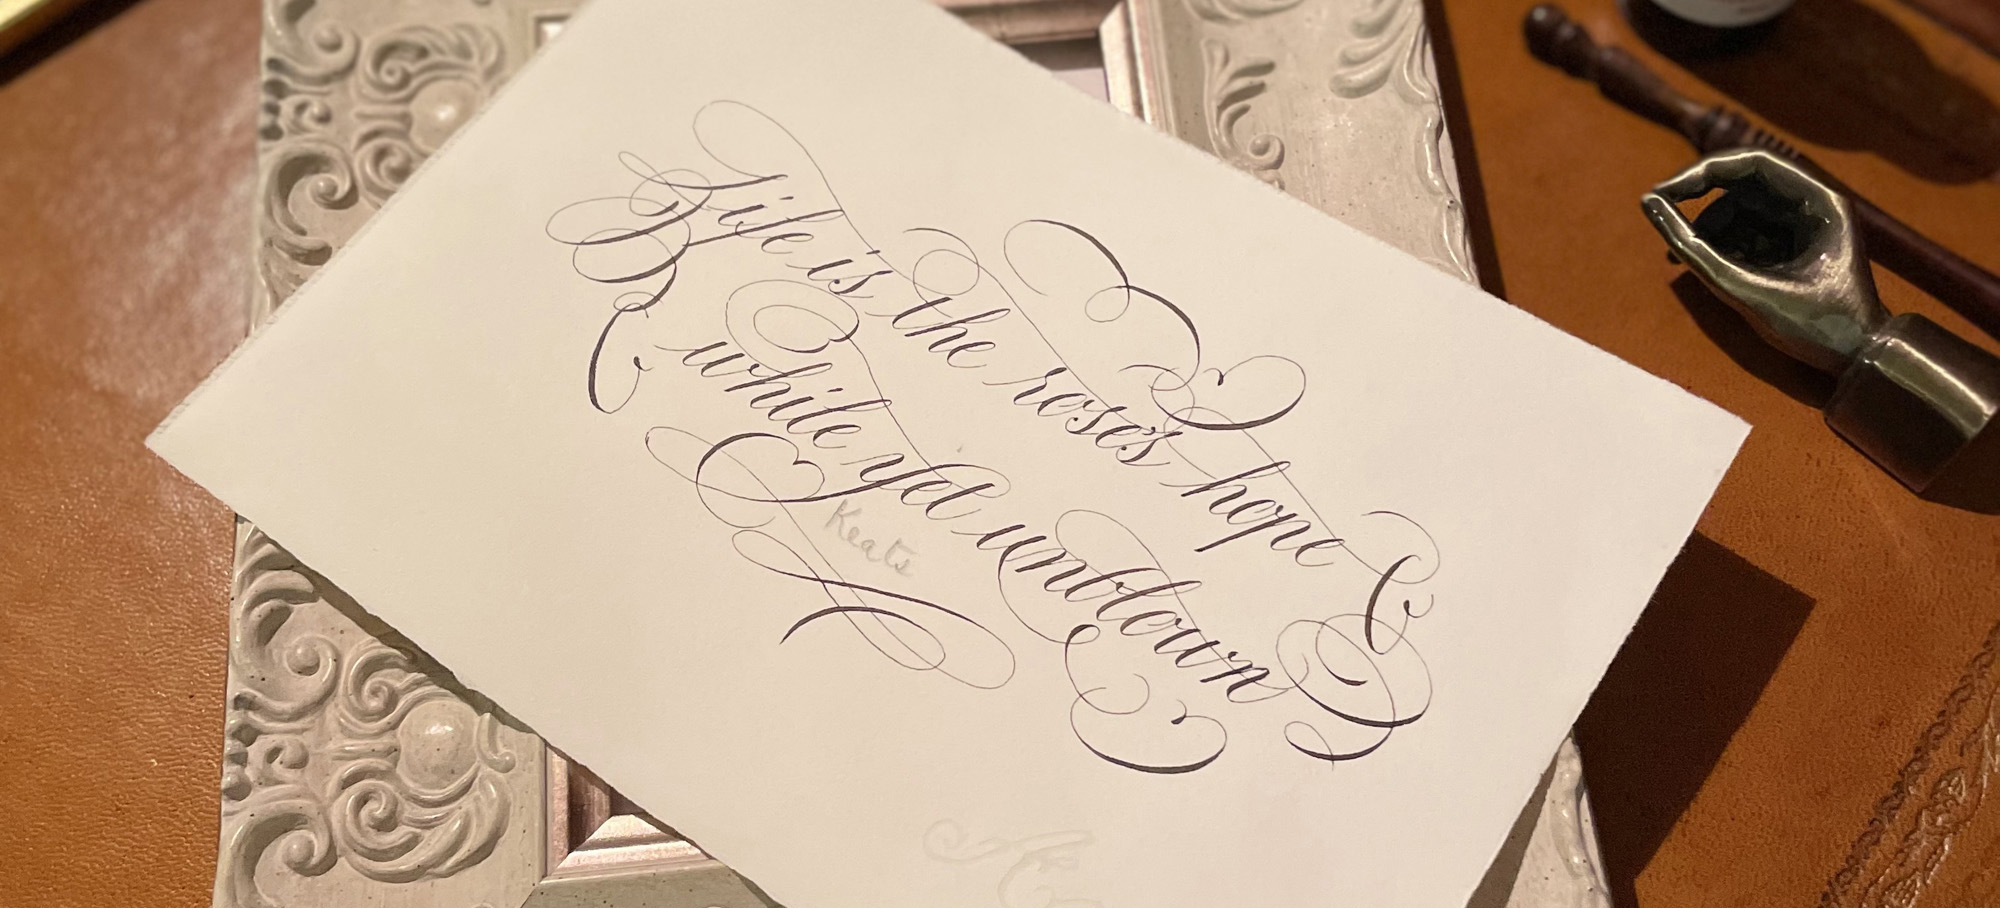 Life is the rose's hope
while yet unblown
Keats